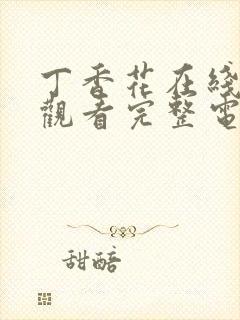 丁香花在綫
觀看完整電
甜醅